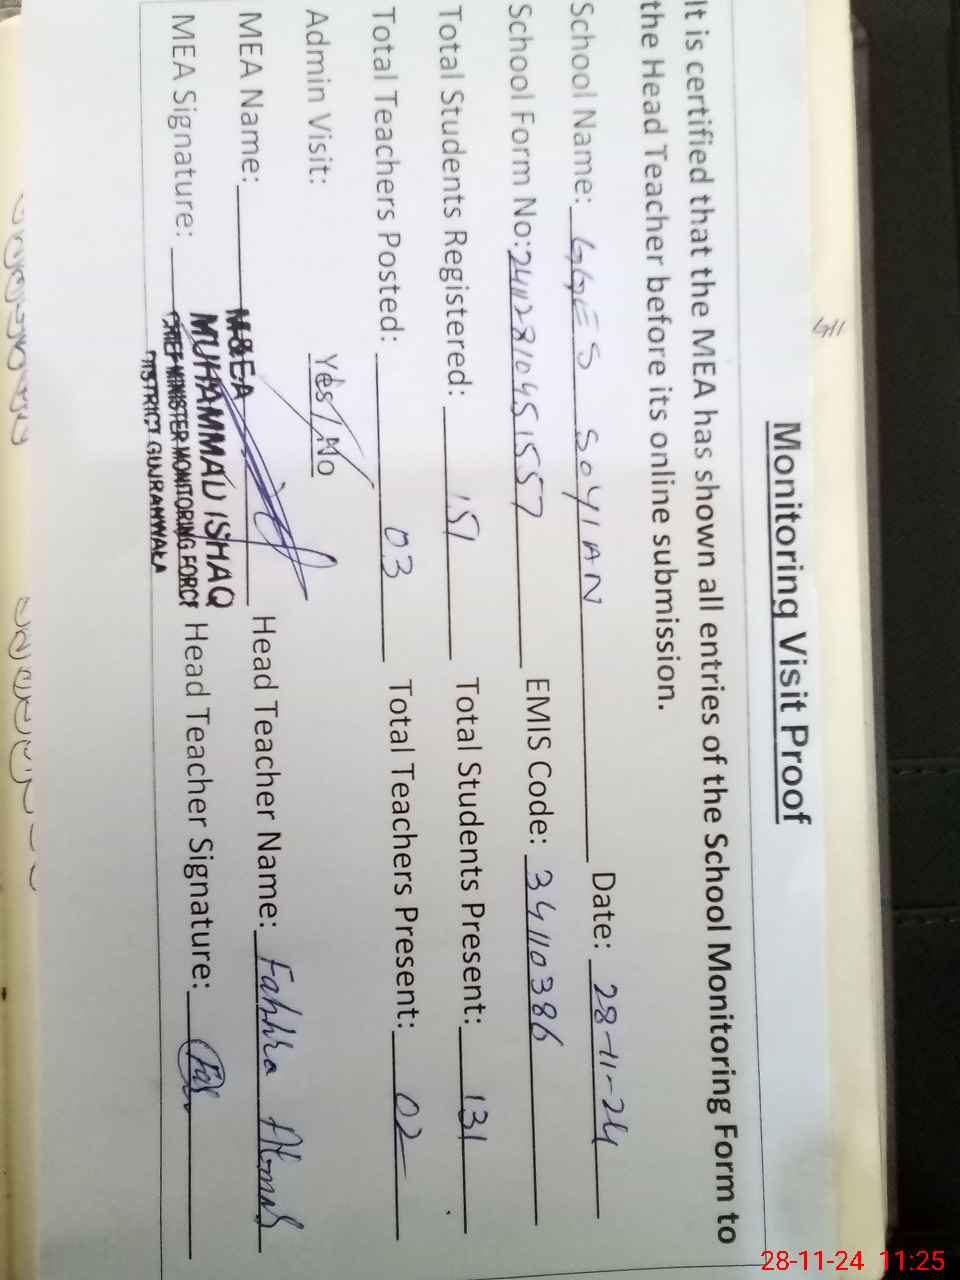 Monitoring Visit Proof
It is certified that the MEA has shown all entries of the School Monitoring Form to
the Head Teacher before its online submission.
School Name: GGES SOYIAN Date: 28-11-24
School Form No: 24112810451557 EMIS Code: 34110386
Total Students Registered: 151 Total Students Present: 131
Total Teachers Posted: 03 Total Teachers Present: 02
Admin Visit: Yes / No
MEA Name: M&EA Head Teacher Name: Fakhra
MUHAMMAD ISHAQ
MEA Signature: CHIEF MINISTER MONITORING FORCE Head Teacher Signature:
DISTRICT GUJRANWALA
28-11-24 11:25